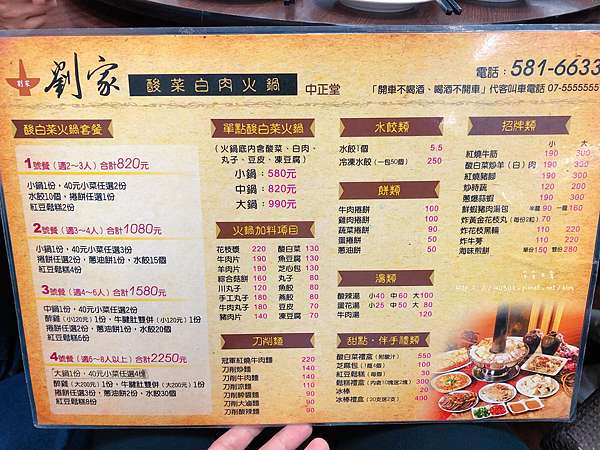 劉家
劉家 酸菜白肉火鍋 中正堂
電話：581-6633
「開車不喝酒、喝酒不開車」代客叫車電話 07-5555555
酸白菜火鍋套餐
1號餐（適2～3人）合計820元
小鍋1份，40元小菜任選2份
水餃10個，捲餅任選1份
紅豆鬆糕2份
2號餐（適3～4人）合計1080元
小鍋1份，40元小菜任選3份
捲餅任選2份，蔥油餅1份，水餃15個
紅豆鬆糕4份
3號餐（適4～6人）合計1580元
中鍋1份，40元小菜任選2份
醉雞（小120元）1份，牛腱肚雙併（小200元）1份
捲餅任選2份，蔥油餅1份，水餃20個
紅豆鬆糕6份
4號餐（適6～8人以上）合計2250元
大鍋1份，40元小菜任選4樣
醉雞（大200元）1份，牛腱肚雙併（大200元）1份
捲餅任選3份，蔥油餅2份，水餃30個
紅豆鬆糕8份
單點酸白菜火鍋
（火鍋底內會酸菜、白肉、
丸子、豆皮、凍豆腐）
小鍋：580元
中鍋：820元
大鍋：990元
火鍋加料項目
花枝漿 220 酸白菜 130
牛肉片 190 魚豆腐 130
羊肉片 190 芝心包 130
綜合菇類 160 丸子 90
川丸子 120 魚餃 90
手工丸子 180 燕餃 80
牛肉丸子 180 豆皮 70
豬肉片 140 凍豆腐 70
刀削麵
冠軍紅燒牛肉麵 220
刀削炒麵 140
刀削牛肉麵 140
刀削涼麵 110
刀削醡醬麵 90
刀削大滷麵 90
刀削酸辣麵 90
水餃類
水餃1個 5.5
冷凍水餃（一包50個） 250
餅類
牛肉捲餅 100
雞肉捲餅 100
蔬菜捲餅 90
蛋捲餅 50
蔥油餅 50
湯類
酸辣湯 小40 中60 大100
蛋花湯 小25 中50 大80
牛肉湯 120
甜點・伴手禮類
酸白菜禮盒
芝麻包
紅豆鬆糕（每個） 30
鬆糕禮盒
冰棒 20
冰棒禮盒
招牌類
小 大
紅燒牛筋 190 300
酸白菜炒羊（白）肉 190 300
紅燒豬腳 190 300
炒時蔬 120 200
蔥爆蒜蝦 190 300
鮮蝦豬肉湯包 半籠90 一籠160
炸黃金花枝丸（每份2粒） 70
炸花枝黑輪 110
炸牛蒡 110
海味煎餅 單份150 雙份280